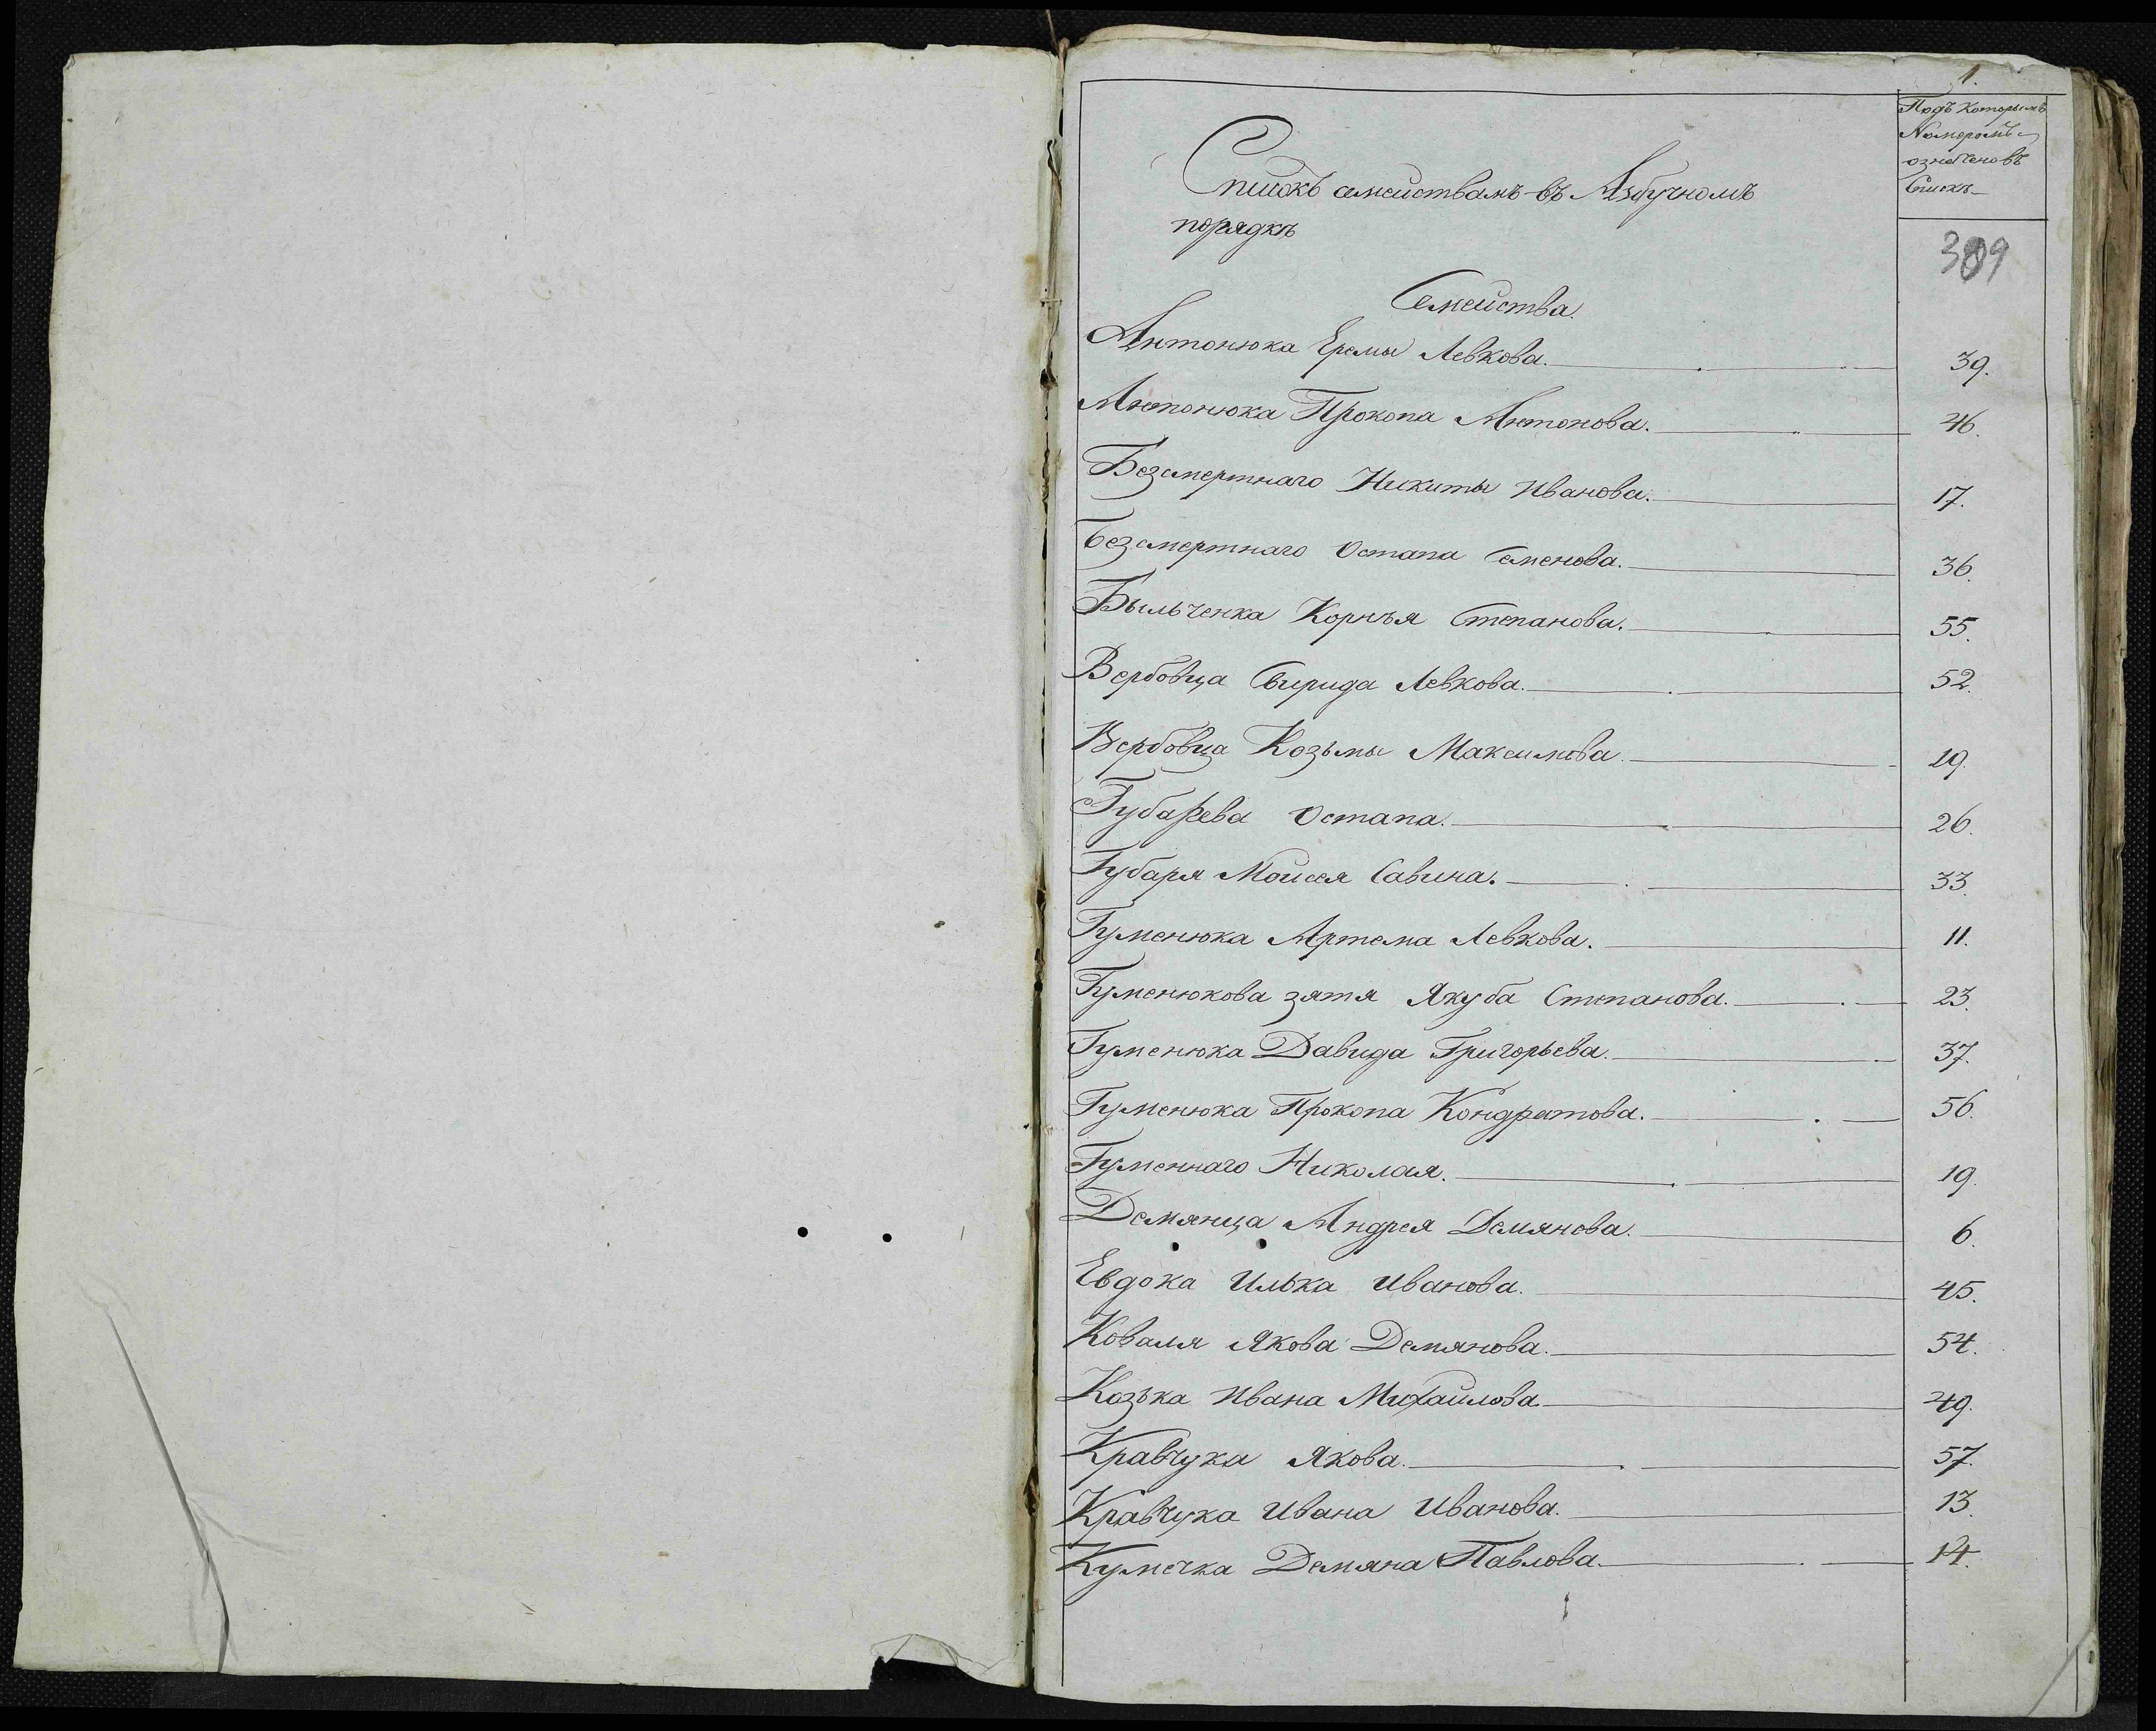 1.
Подъ которымъ
Номеромъ
означеновъ
Списке
Списокъ семействамъ въ Азбучномъ
порядкѣ
389
Семейства.
Антонюка Еремы Левкова. 39.
Антонюка Прокопа Антонова. 46.
Безсмертнаго Никиты Иванова. 17.
Безсмертнаго Остапа Семенова. 36.
Быльченка Корнѣя Степанова. 55.
Вербовца Свирида Левкова. 52.
Вербовца Козьмы Максимова. 29.
Губарева Остапа. 26.
Губаря Моисея Савина. 33.
Гуменюка Артема Левкова. 11.
Гуменюкова зятя Якуба Степанова. 23.
Гуменюка Давида Григорьева. 37.
Гуменюка Прокопа Кондратова. 56.
Гуменнаго Николая. 19.
Демянца Андрея Демянова. 6.
Евдока Илька Иванова. 45.
Коваля Якова Демянова. 54.
Козька Ивана Михайлова. 49.
Кравчука Якова. 57.
Кравчука Ивана Иванова. 13.
Кумечка Демяна Павлова. 14.